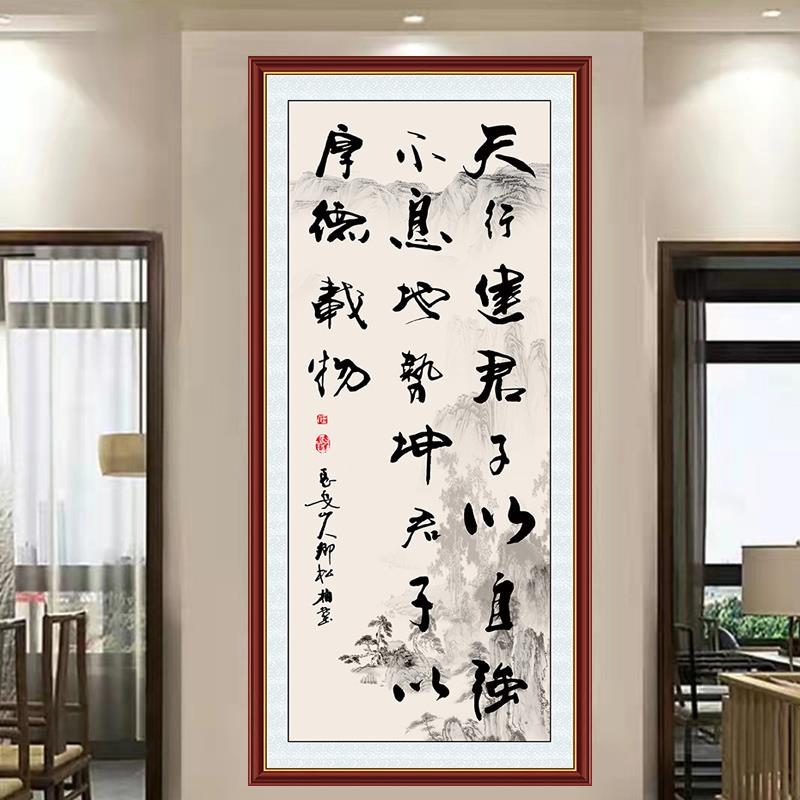 天行健君子以自強
不息地勢坤君子以
厚德載物
山人卿松柏堂